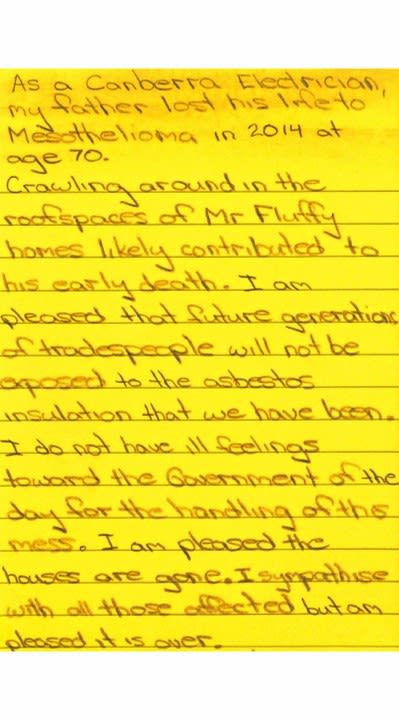 As a Canberra Electrician,
my father lost his life to
Mesothelioma in 2014 at
age 70.
Crawling around in the
roofspaces of Mr Fluffy
homes likely contributed to
his early death. I am
pleased that future generations
of tradespeople will not be
exposed to the asbestos
insulation that we have been.
I do not have ill feelings
toward the Government of the
day for the handling of this
mess. I am pleased the
houses are gone. I sympathise
with all those affected but am
pleased it is over.